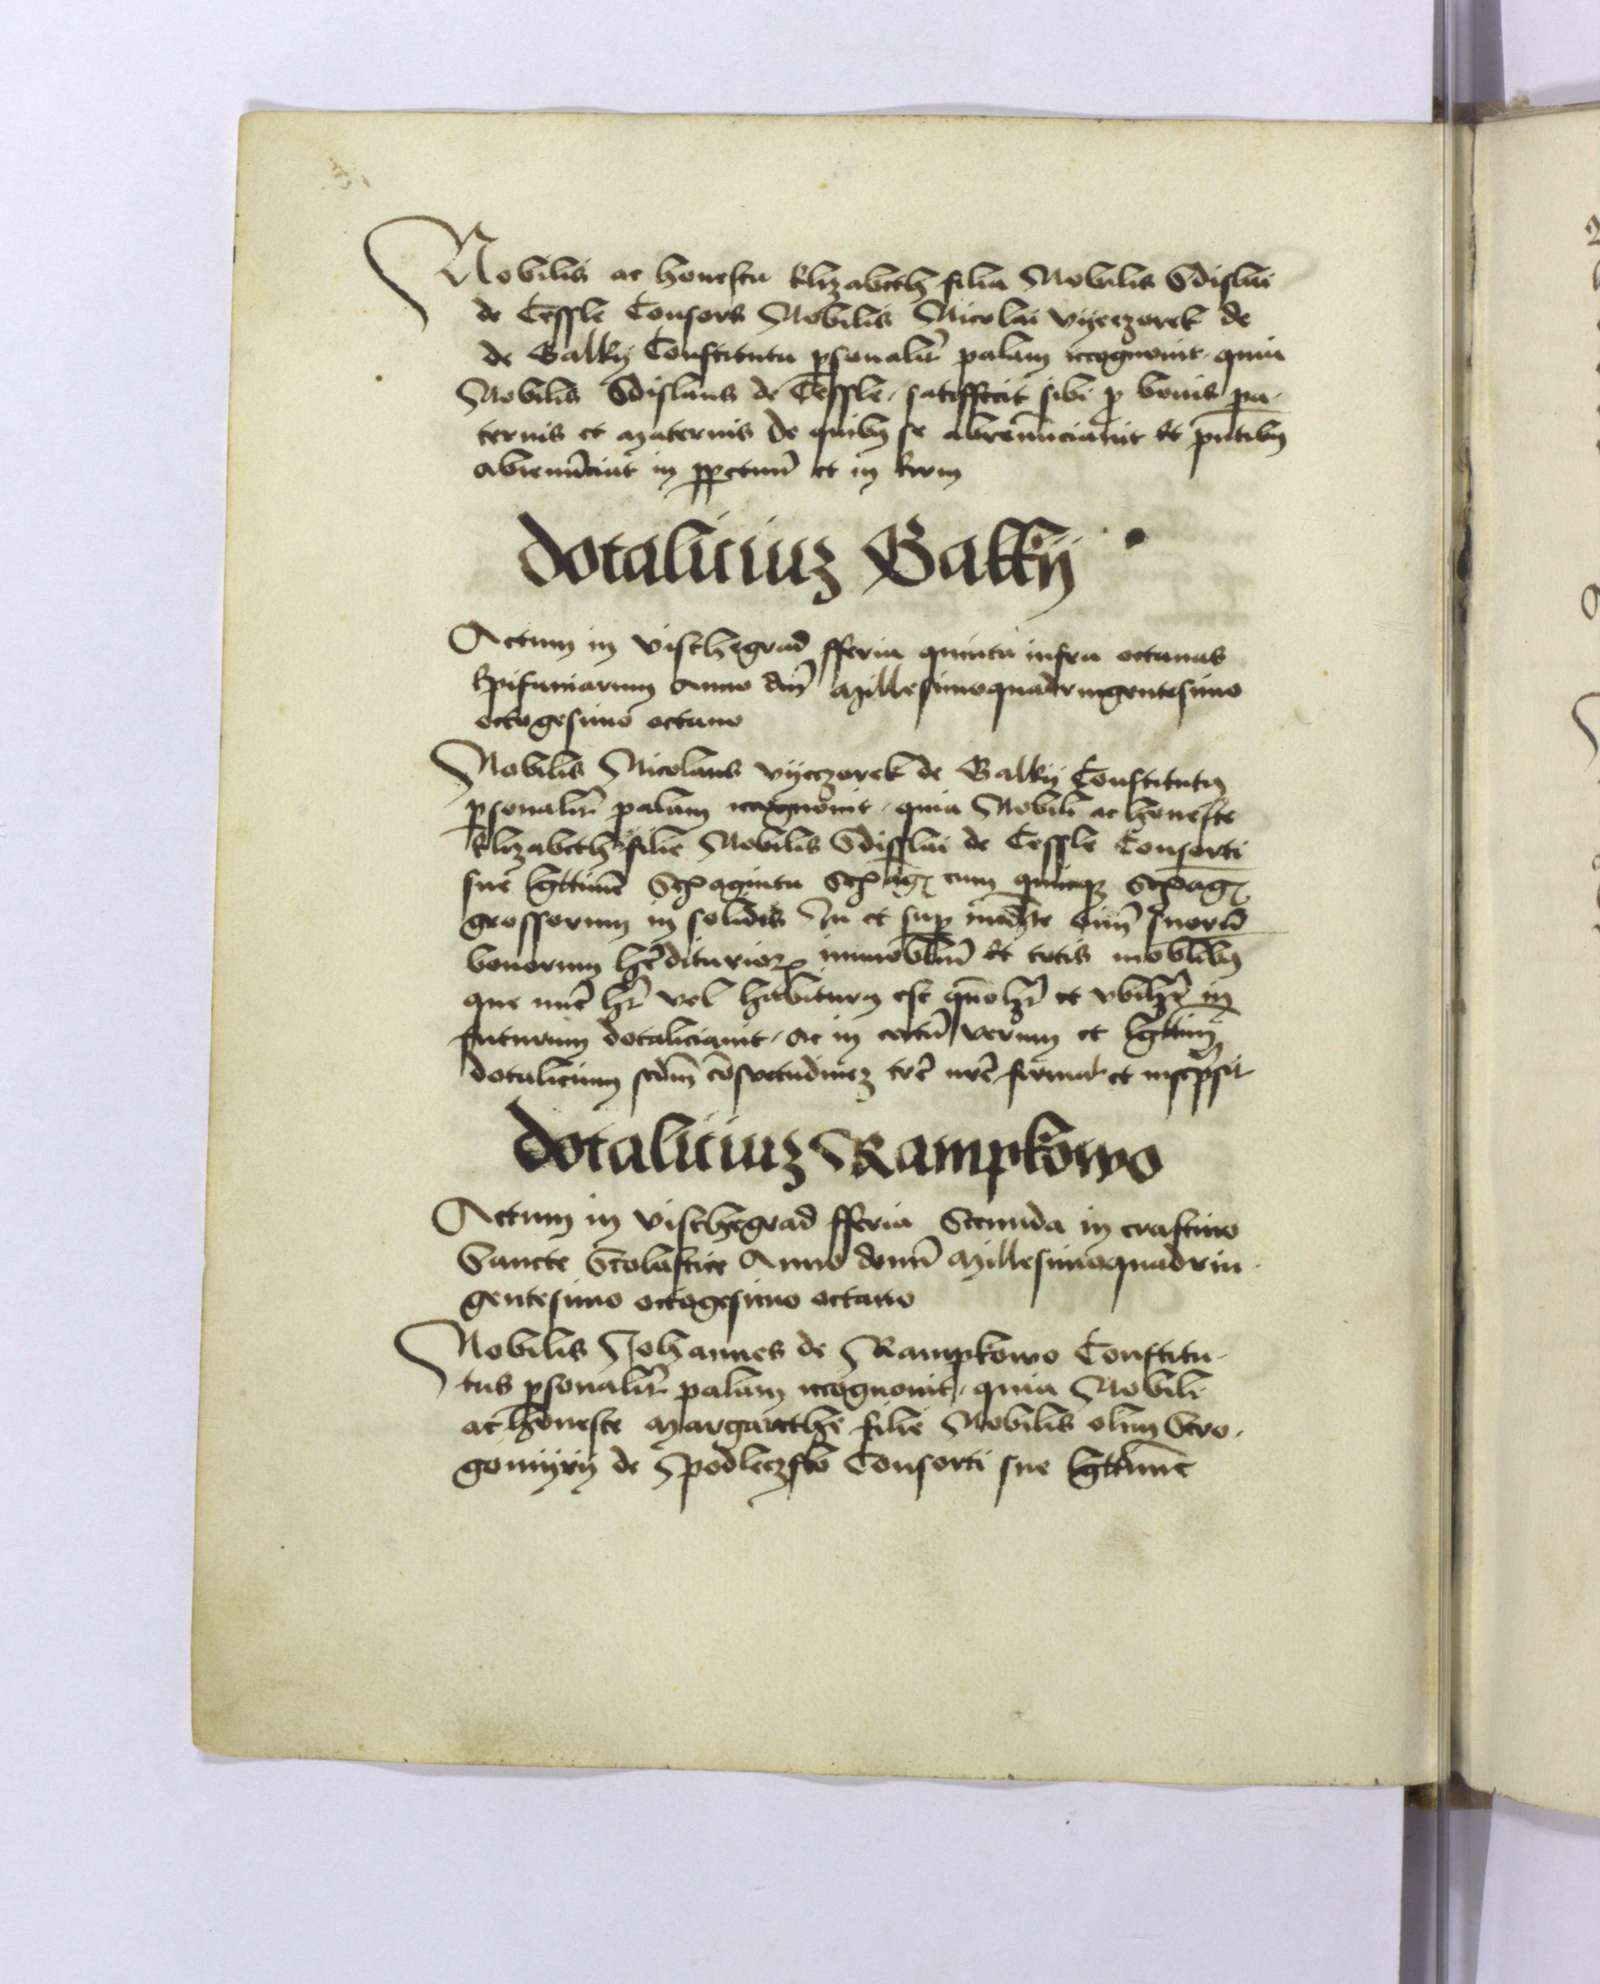 Nobilis ac honesta Elizabeth filia Nobilis Sdislai
de Cessle Consors Nobilis Nicolai vyeczorek de
de Balky Constituta psonalir palam recognouit quia
Nobilis Sdislaus de Cessle satisffecit sibi p bonis pa
ternis et maternis de quibus se abrenunciauit Et pntibus
abrenunciat in ppetuum et in Ewm
dotaliciuz Balky
Actum in vischegrad fferia quinta infra octauas
Epifaniarum Anno dni Millesimoquadringentesimo
octogesimo octauo
Nobilis Nicolaus vyeczorek de Balky Constitutus
psonalir palam recognouit quia Nobili ac honeste
Elizabeth filie Nobilis Sdislai de Cessle Consorti
sue lgttime Sexaginta Sexag cum quinque Sexag
grossorum in solidis In et sup medte oim suoru
bonorum hereditarior immobiliu Et totis mobilibus
que nunc hr vel habiturus est quolr et vbilr in
futurum dotaliciauit ac in certu verum et lgttim
dotalicium scdm cosuetudinez tre nre firmat et inscpsit
dotaliciuz Rampkowo
Actum in vischegrad fferia Secunda in crastino
Sancte Scolastice Anno domi Millesimoquadrin
gentesimo octogesimo octauo
Nobilis Johannes de Rampkowo Constitu
tus psonalir palam recognouit quia Nobili
ac honeste Margarethe filie Nobilis olim Stro
gomyry de Podleczsko Consorti sue lgttime